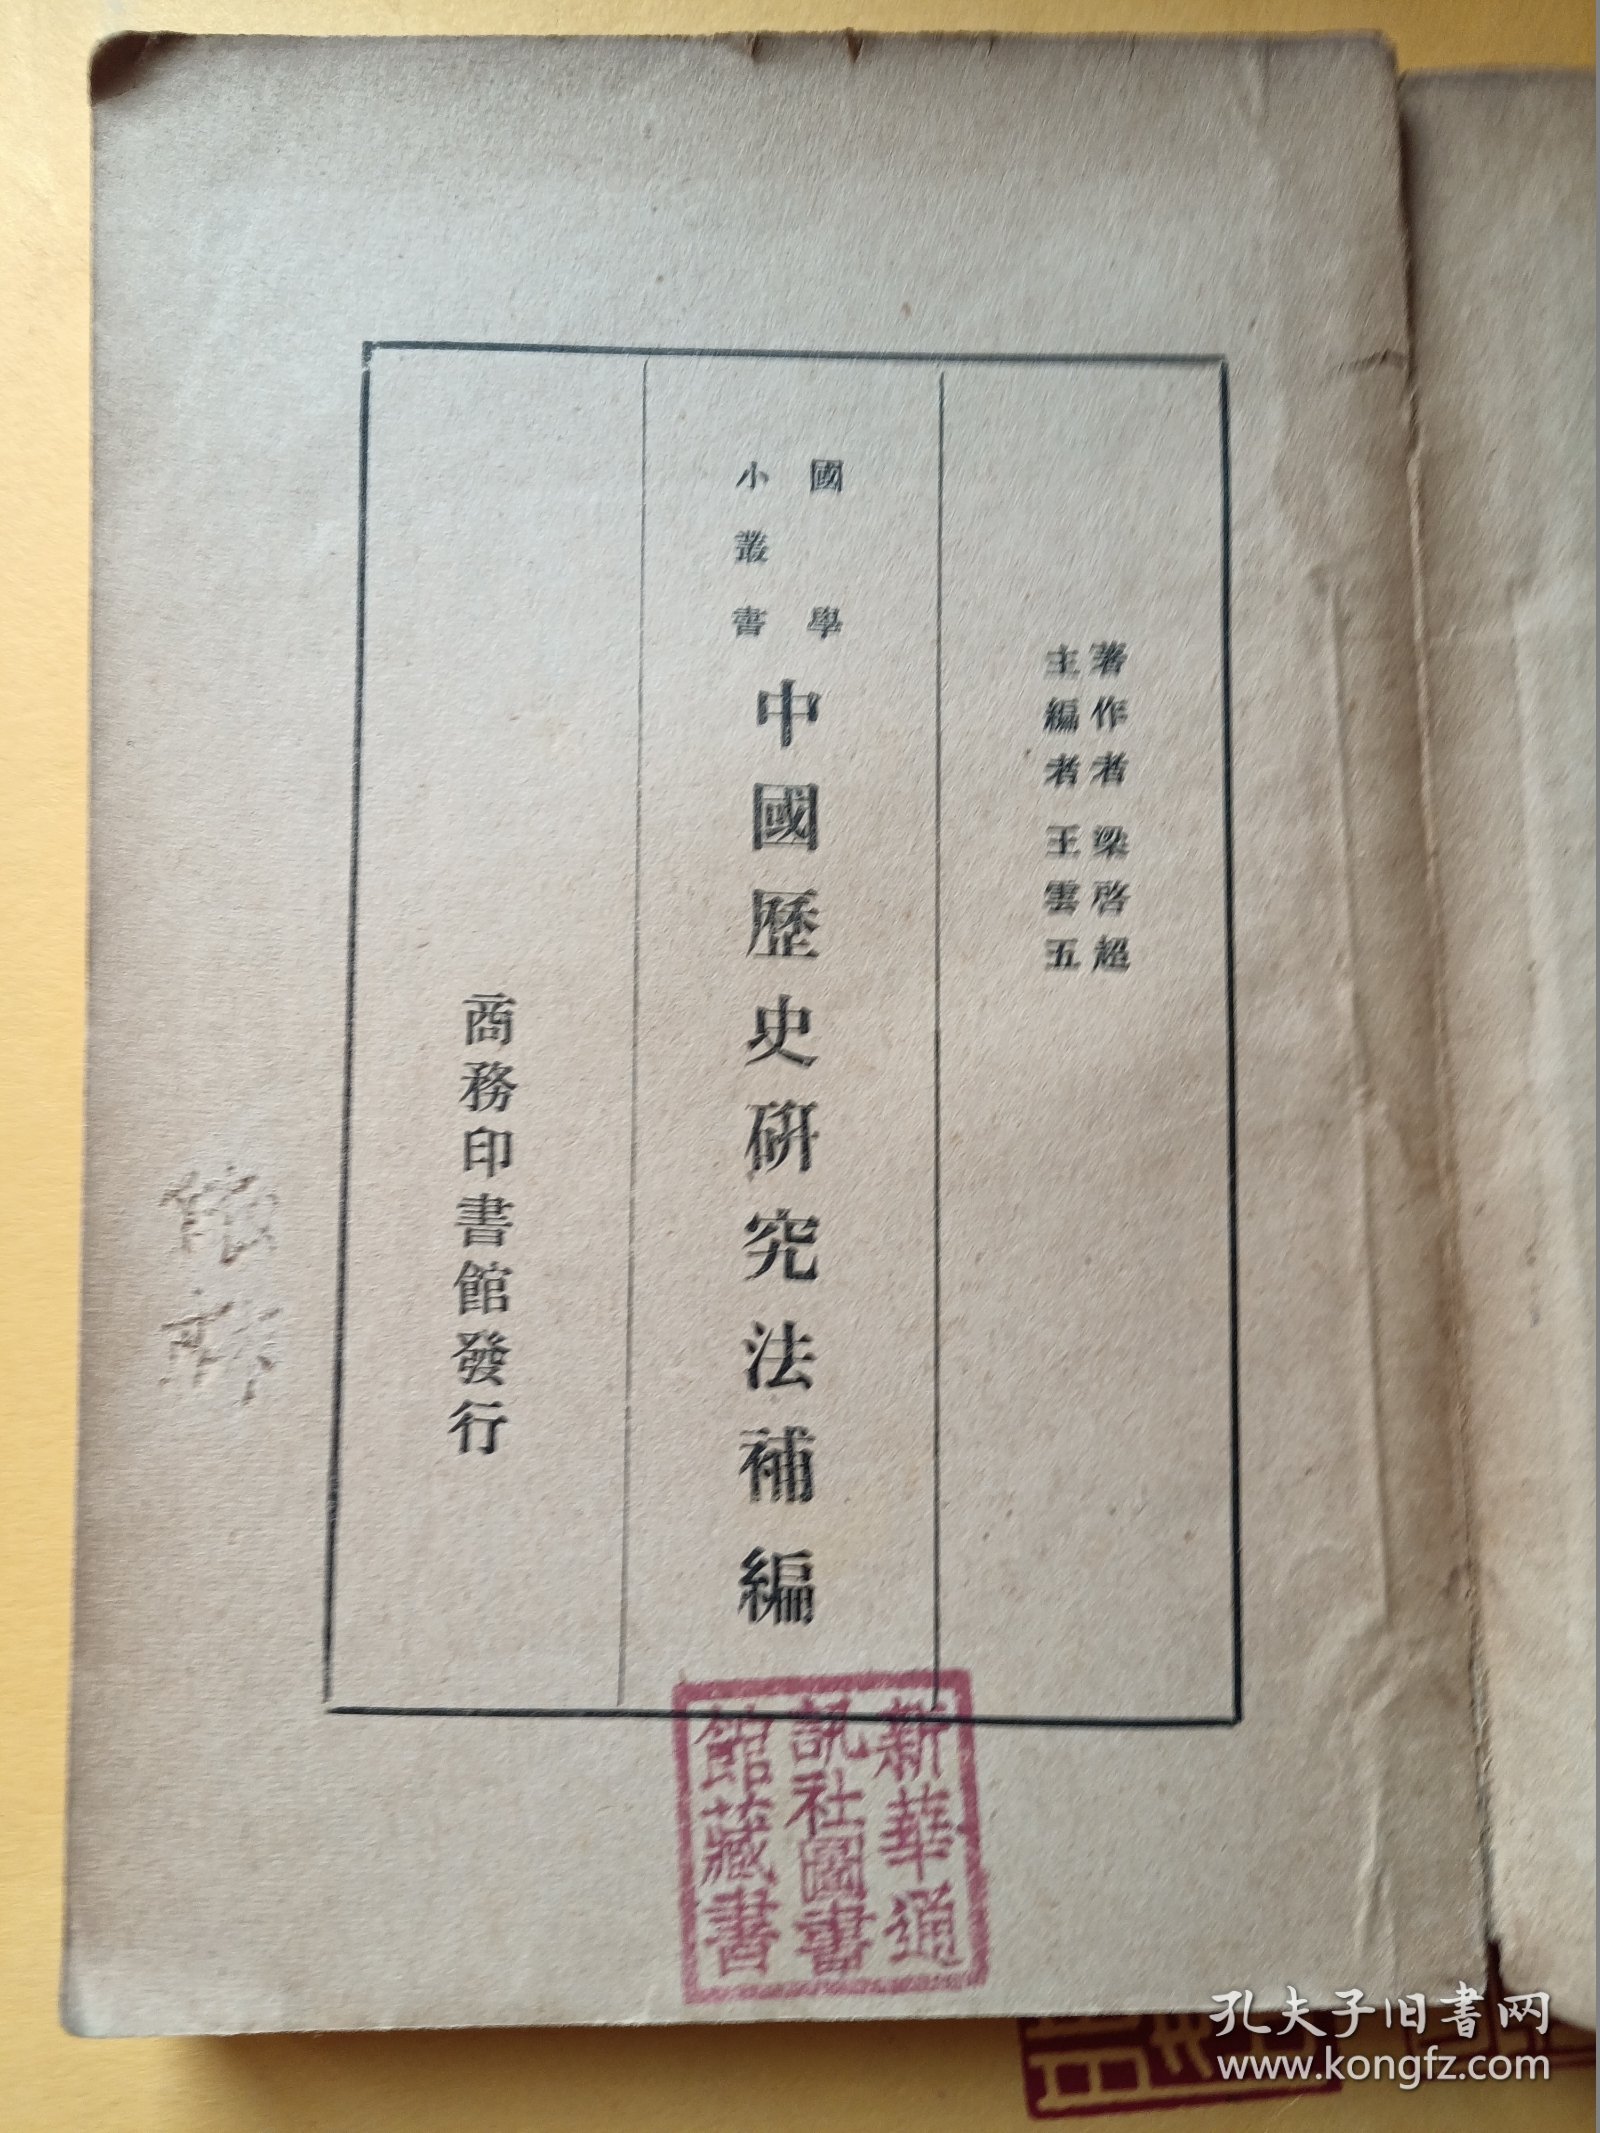 著作者 梁啓超
主編者 王雲五
國學
小叢書
中國歷史研究法補編
商務印書館發行
新華通
訊社圖書
館藏書
孔夫子旧書网
www.kongfz.com